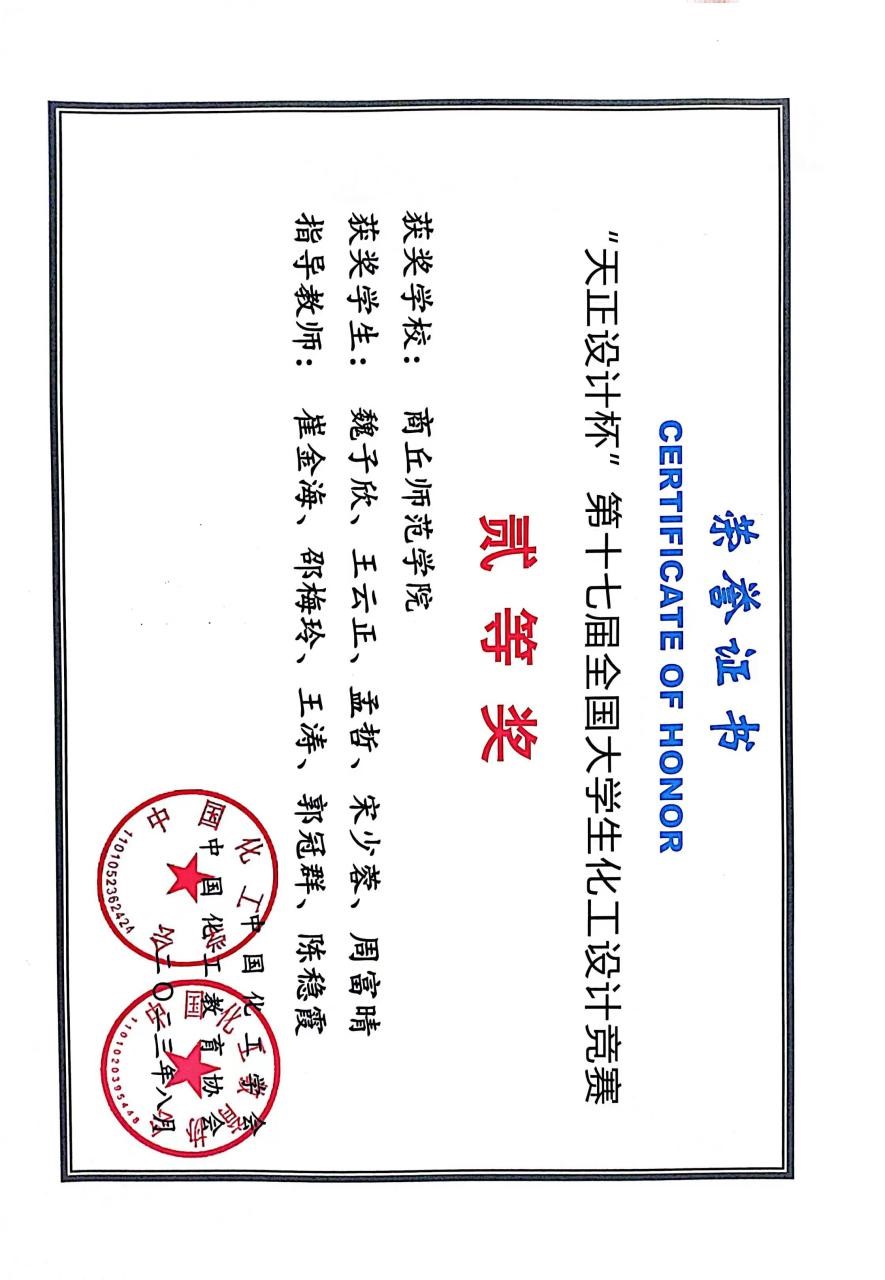 荣誉证书
CERTIFICATE OF HONOR
“天正设计杯”第十七届全国大学生化工设计竞赛
贰等奖
获奖学校：商丘师范学院
获奖学生：魏子欣、王云正、孟哲、宋少蓉、周富晴
指导教师：崔金海、邵梅玲、王涛、郭冠群、陈稳霞
中国化工学会
中国化工教育协会
二〇二三年八月
1101052362424
1101020395448